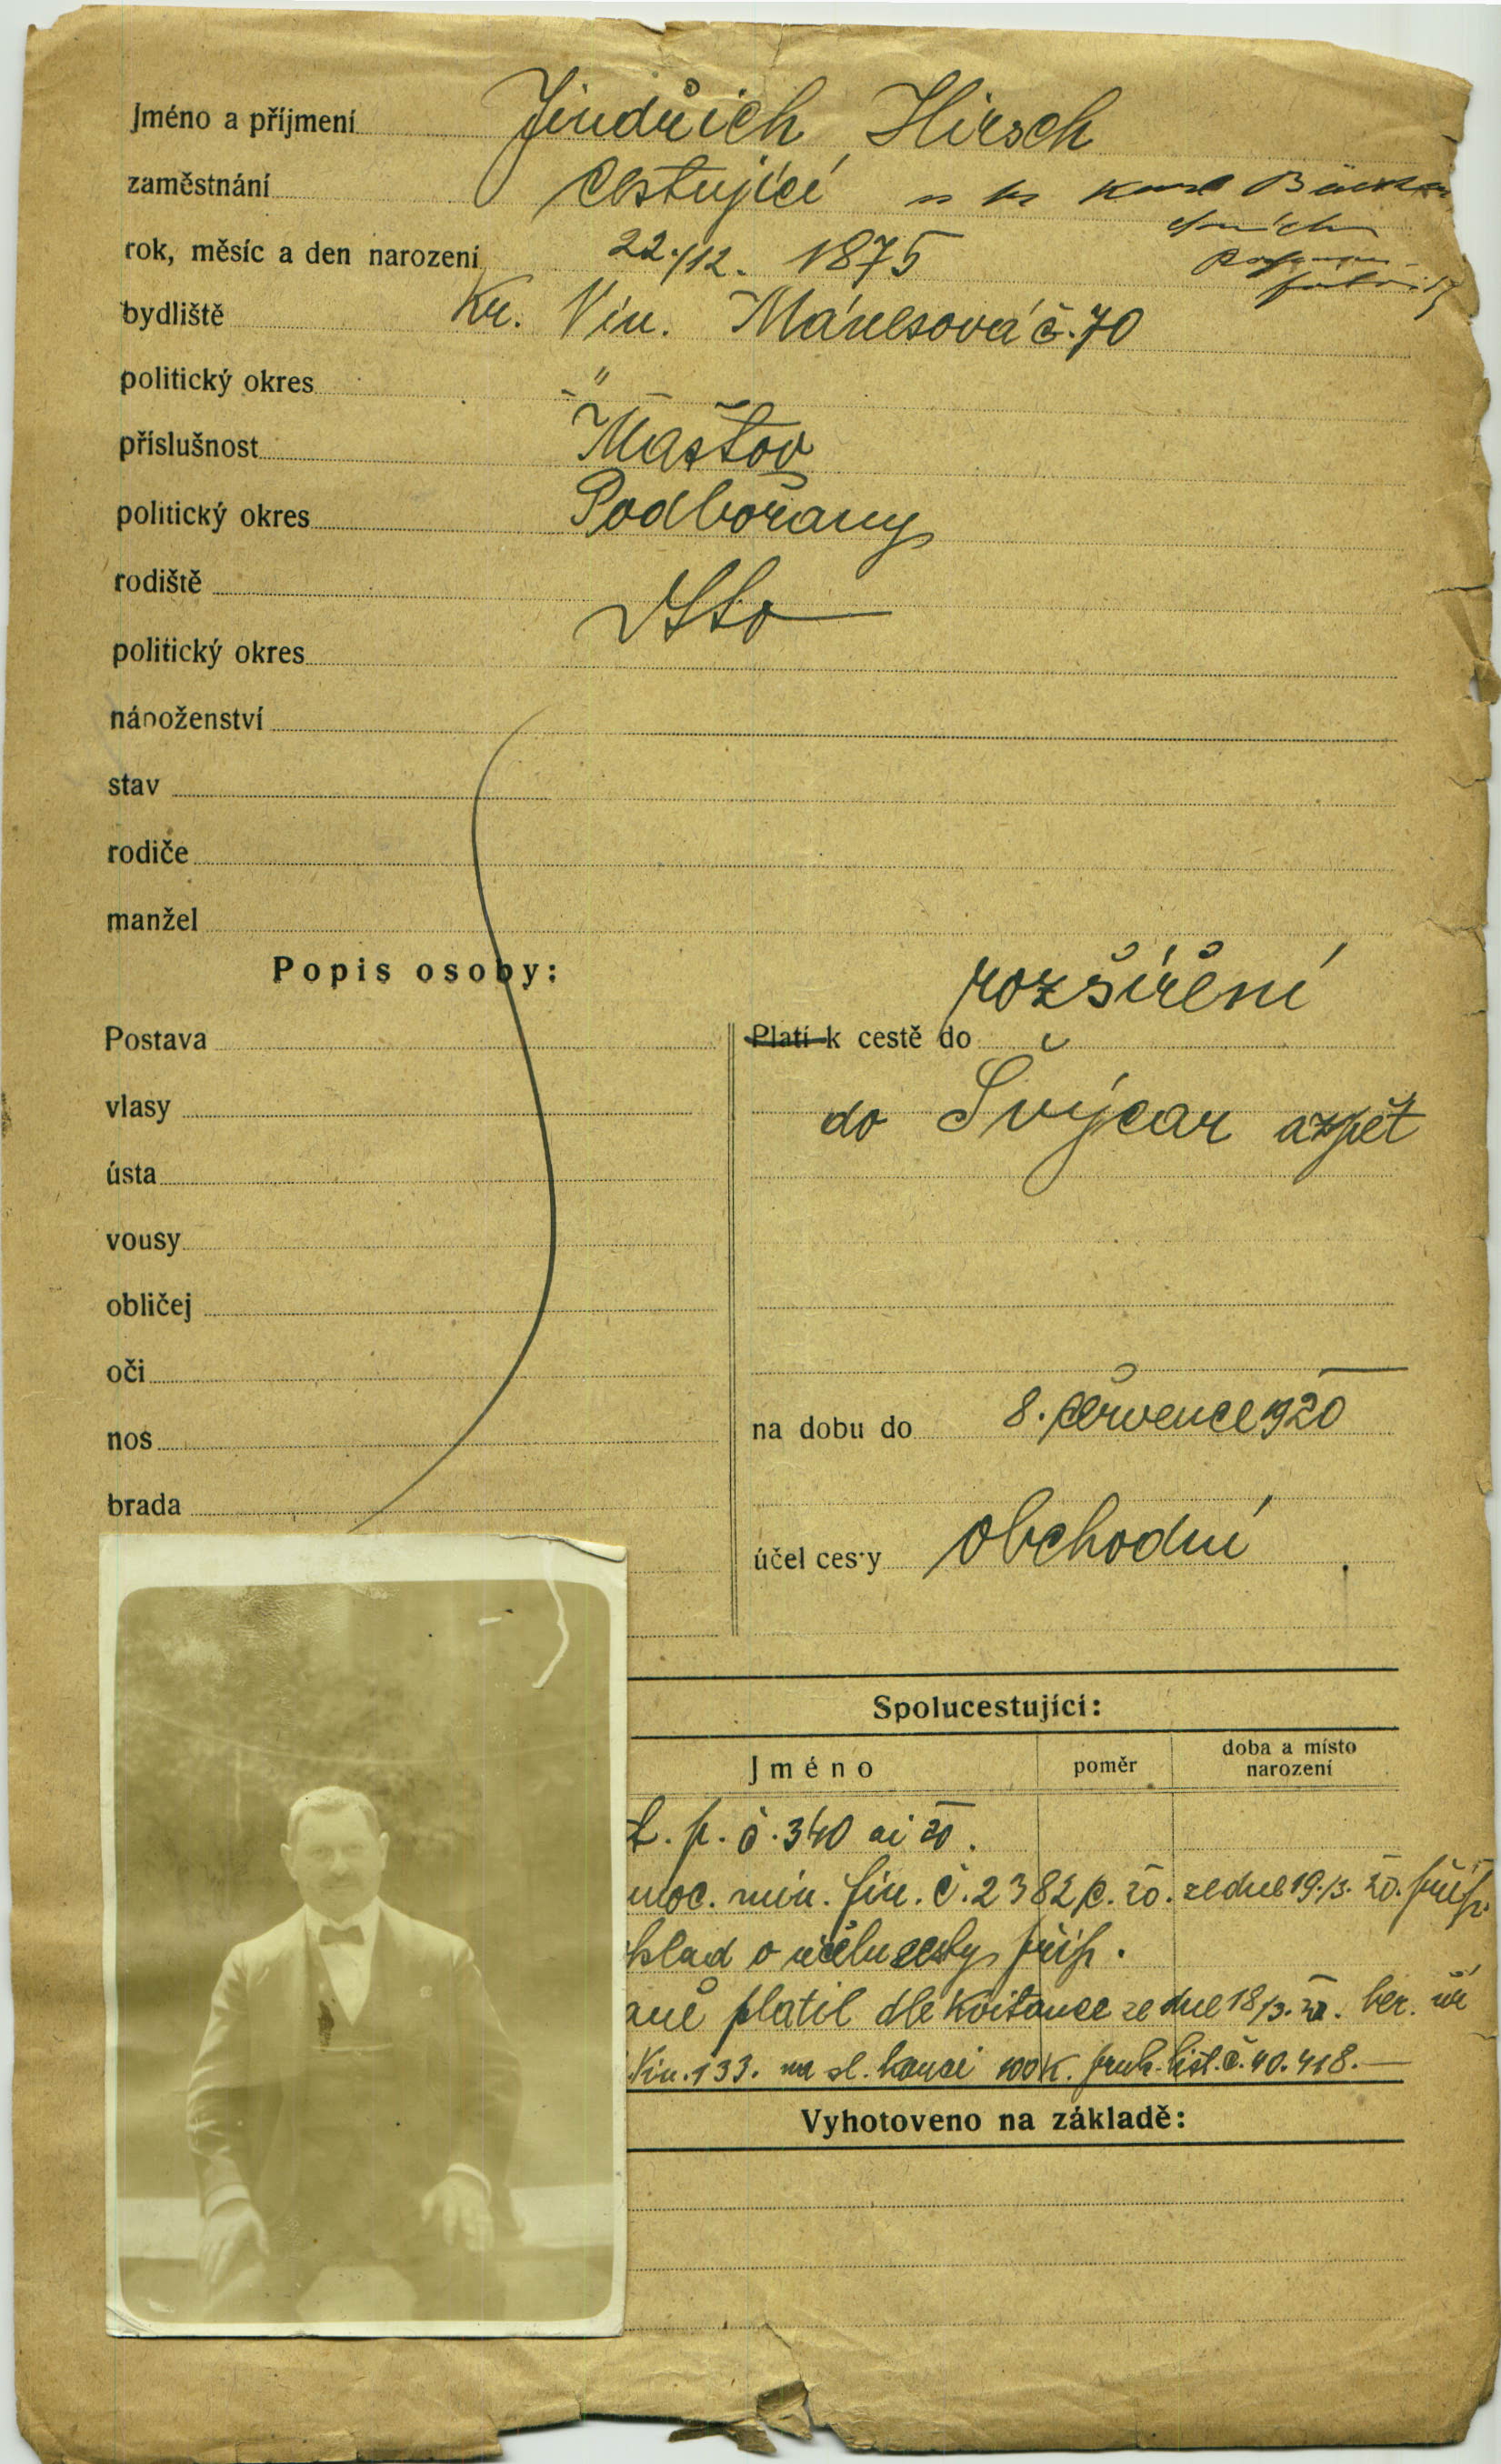 Jméno a příjmení Jindřich Hirsch
zaměstnání Cestující
rok, měsíc a den narození 22./12. 1875
bydliště Kr. Vin. Mánesová č. 70
politický okres - " -
příslušnost Maštov
politický okres Podbořany
rodiště dtto
politický okres
náboženství
stav
rodiče
manžel
Popis osoby:
rozšíření
Postava
Platí k cestě do
vlasy
do Švýcar a zpět
ústa
vousy
obličej
oči
na dobu do 8. července 1920
nos
brada
účel cesty obchodní
Spolucestující:
Jméno poměr doba a místo narození
č. 340 ai 20.
moc. min. fin. č. 2382/c. 20. ze dne 19./3. 20. přip.
klad o účelu cesty přip.
aně platil dle kvitance ze dne 18/3. 20. ber. úř
Vin. 133. na sl. 100 K. list. č. 40.418.—
Vyhotoveno na základě: